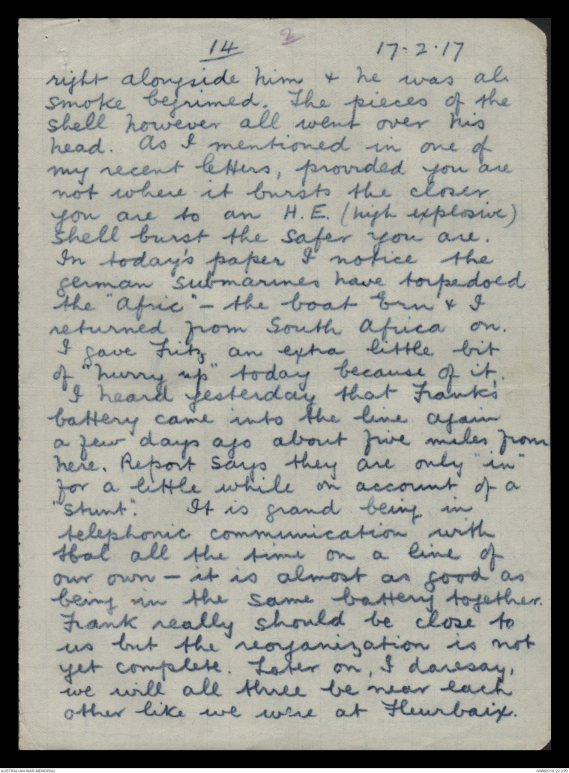 14 2 17-2-17
right alongside him & he was all
smoke begrimed. The pieces of the
shell however all went over his
head. As I mentioned in one of
my recent letters, provided you are
not where it bursts the closer
you are to an H.E. (high explosive)
shell burst the safer you are.
In today's paper I notice the
german submarines have torpedoed
the "Afric" – the boat Ern & I
returned from South Africa on.
I gave Fritz an extra little bit
of "hurry up" today because of it.
I heard yesterday that Frank's
battery came into the line again
a few days ago about five miles from
here. Report says they are only "in"
for a little while on account of a
"stunt". It is grand being in
telephonic communication with
Hal all the time on a line of
our own – it is almost as good as
being in the same battery together.
Frank really should be close to
us but the reorganization is not
yet complete. Later on, I daresay,
we will all three be near each
other like we were at Fleurbaix.
AUSTRALIAN WAR MEMORIAL